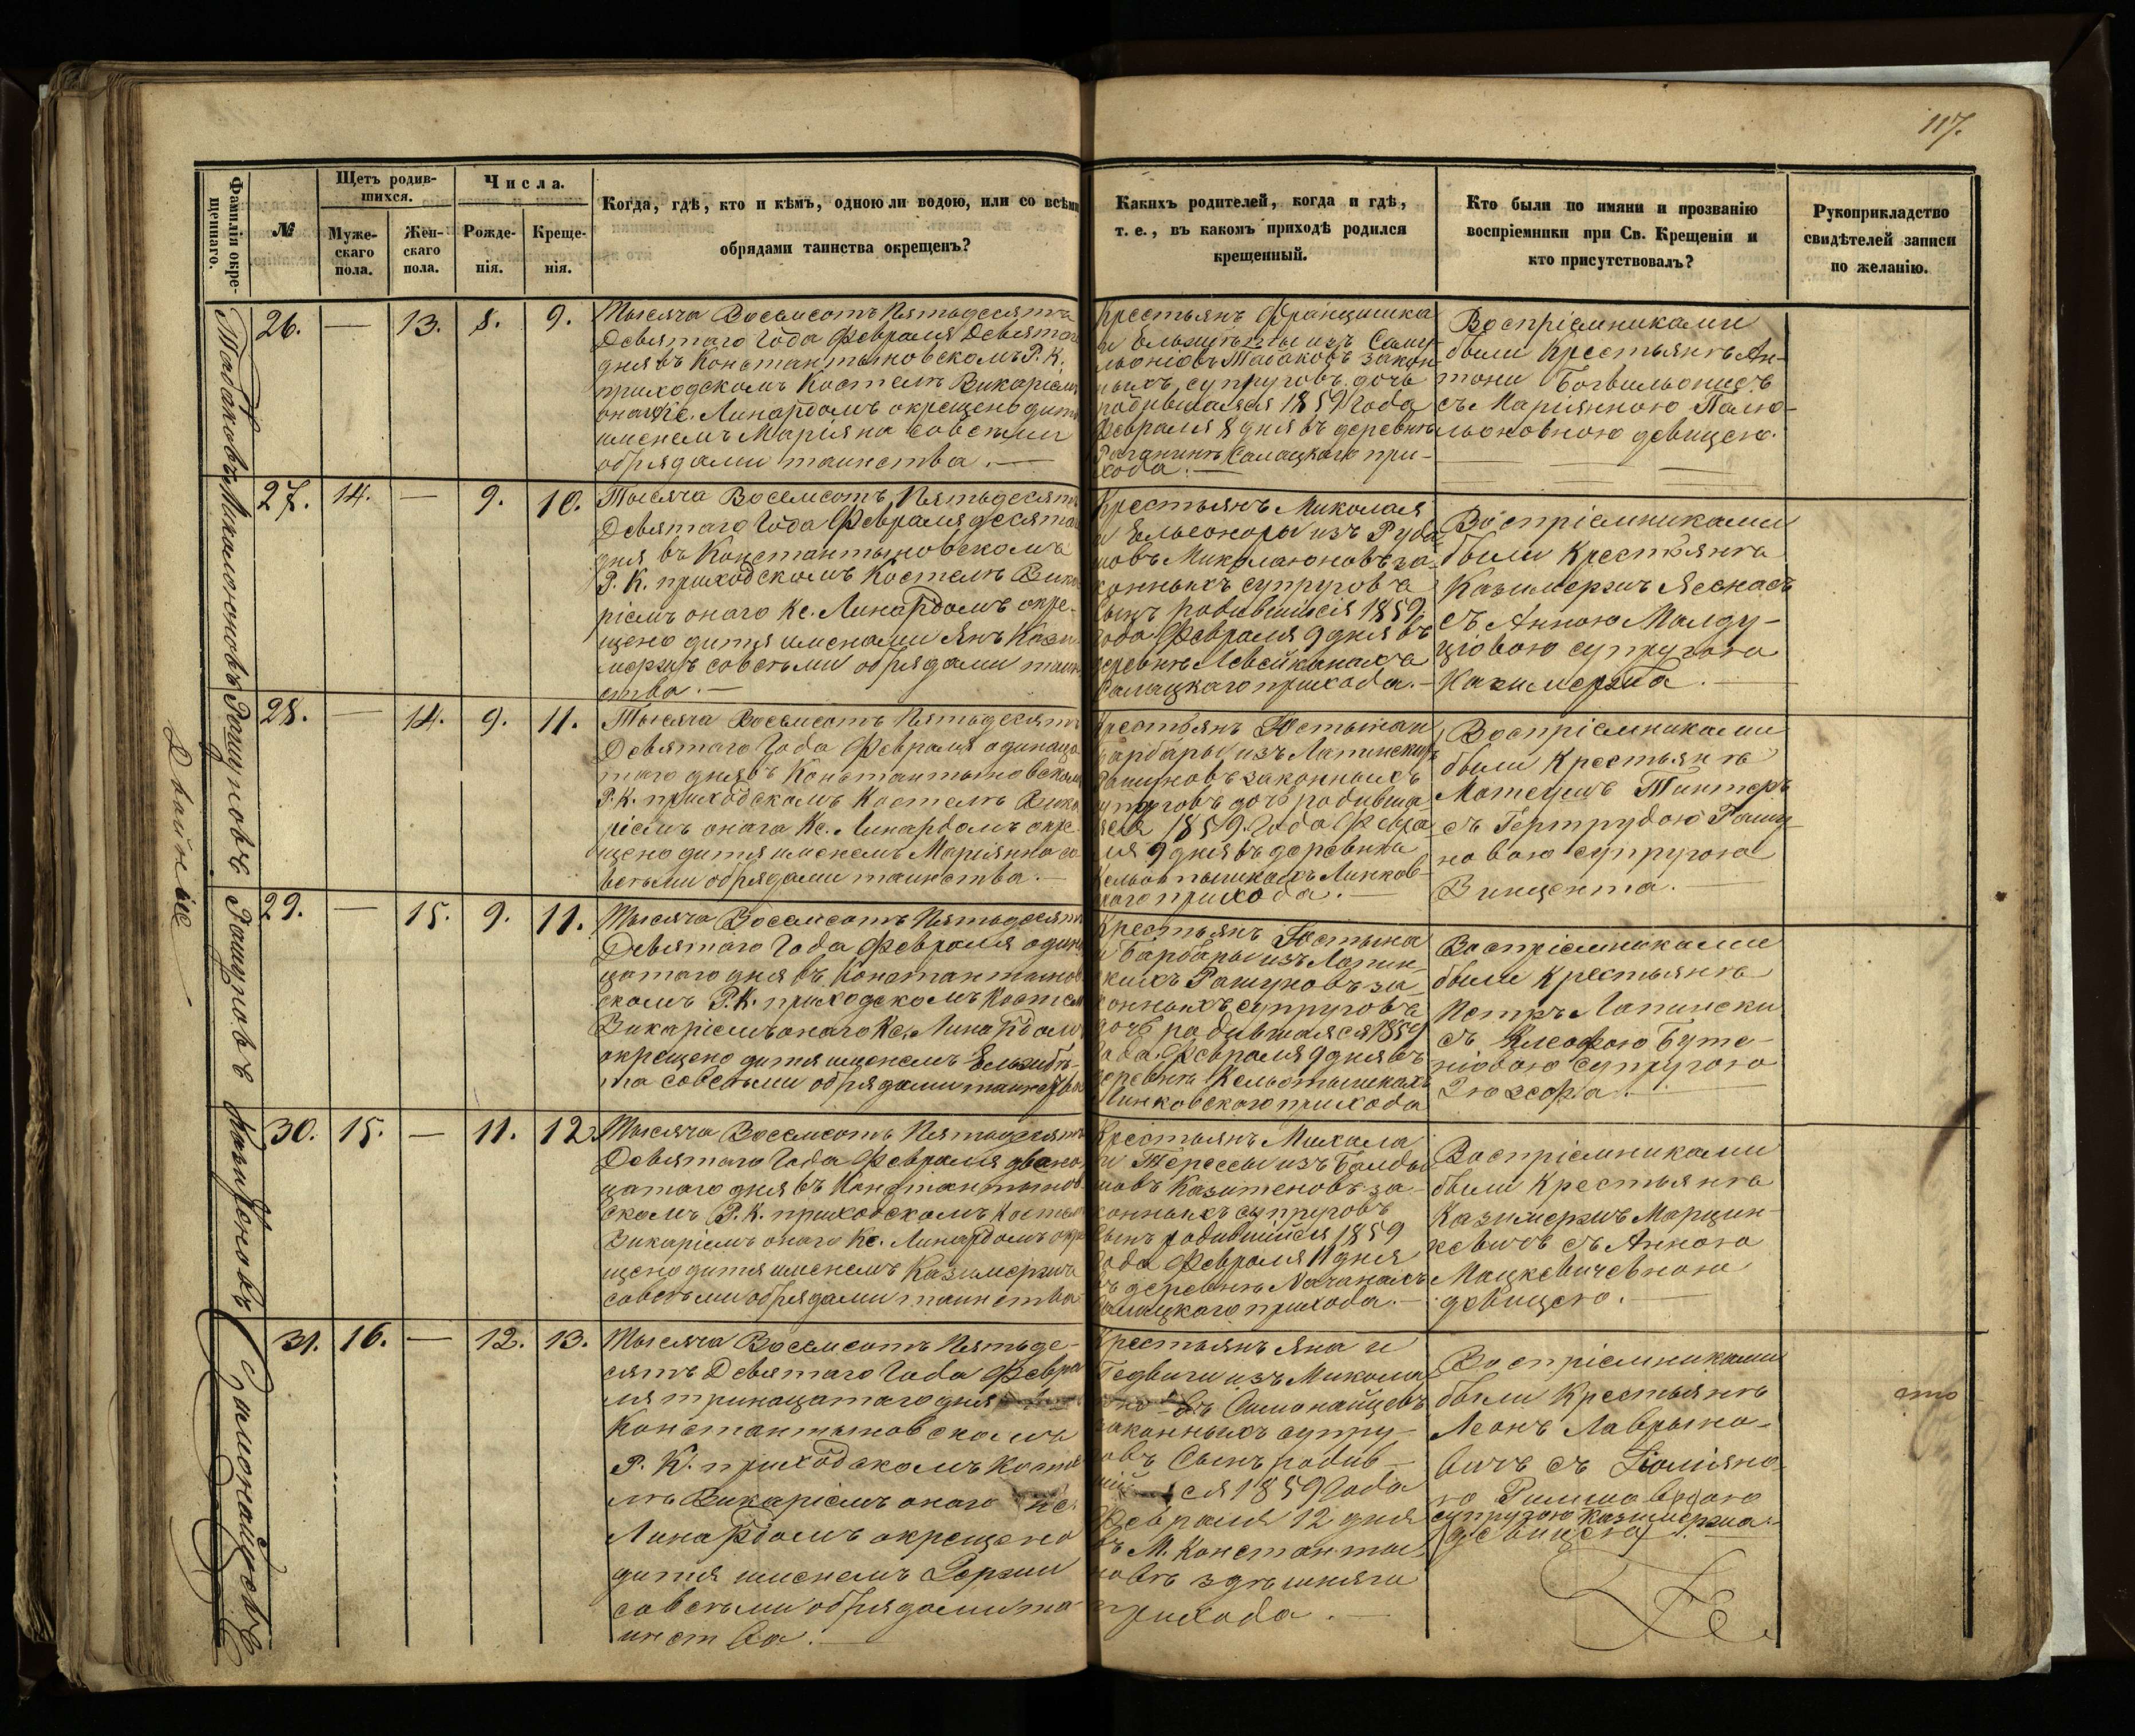 117.
Фамилія окре-
щеннаго.
№
Щетъ родив-
шихся.
Муже-
скаго
пола.
Жен-
скаго
пола.
Числа.
Рожде-
нія.
Креще-
нія.
Когда, гдѣ, кто и кѣмъ, одною ли водою, или со всѣми
обрядами таинства окрещенъ?
Какихъ родителей, когда и гдѣ,
т. е., въ какомъ приходѣ родился
крещенный.
Кто были по имяни и прозванію
воспріемники при Св. Крещеніи и
кто присутствовалъ?
Рукоприкладство
свидѣтелей записи
по желанію.
Табаковъ
26. — 13. 8. 9.
Тысяча Восемсотъ Пятьдесятъ
Девятаго Года Февраля Девятаго
дня въ Константыновскомъ Р. К.
приходскомъ Костелѣ Викаріемъ
онаго Кс. Линардомъ окрещено дитя
именемъ Маріяна совсѣми
обрядами таинства. —
Крестьянъ Францишка
и Ельжбѣты изъ
Табаковъ закон
ныхъ супруговъ дочь
родившаяся 1859 Года
Февраля 8 дня въ деревнѣ
Салацкаго при-
хода. —
Воспріемниками
были Крестьянѣ Ан-
тони
съ Маріянною Палю-
льоновною девицею.
Миколюновъ
27. 14. — 9. 10.
Тысяча Восемсотъ Пятьдесятъ
Девятаго Года Февраля десятаго
дня въ Константыновскомъ
Р. К. приходскомъ Костелѣ Вика
ріемъ онаго Кс. Линардомъ окре-
щено дитя именами Янъ Кази-
мержъ совсѣми обрядами таин
ства. —
Крестьянъ Миколая
и Ельеоноры изъ
новъ Миколаюновъ за-
конныхъ супруговъ
сынъ родившійся 1859.
года Февраля 9 дня въ
деревнѣ
Салацкаго прихода. —
Воспріемниками
были Крестьянѣ
Казимержъ Яснасъ
съ Анною Малду-
ціовою супругою
Казимержа. —
Рашуновъ
28. — 14. 9. 11.
Тысяча Восемсотъ Пятьдесятъ
Девятаго Года Февраля одинаца
таго дня въ Константыновскомъ
Р. К. приходскомъ Костелѣ Вика
ріемъ онаго Кс. Линардомъ окре-
щено дитя именемъ Маріянна со
всѣми обрядами таинства. —
Крестьянъ Юстына и
Барбары изъ Лапинскихъ
Рашуновъ законныхъ
супруговъ дочь родивша
яся 1859. Года Февра
ля 9 дня въ деревнѣ
Линков-
скаго прихода. —
Воспріемниками
были Крестьянѣ
Матеушъ Тинтеръ
съ Гертрудою Рашу-
новою супругою
Винцента. —
Рашуновъ
29. — 15. 9. 11.
Тысяча Восемсотъ Пятьдесятъ
Девятаго Года Февраля одина
цатаго дня въ Константынов
скомъ Р. К. приходскомъ Костелѣ
Викаріемъ онаго Кс. Линардомъ
окрещено дитя именемъ Ельжбѣ-
та совсѣми обрядами таинства
Крестьянъ Юстына
и Барбары изъ Лапин-
скихъ Рашуновъ за-
конныхъ супруговъ
дочь родившаяся 1859
Года Февраля 9 дня въ
деревнѣ Кельотышкахъ
Линковскаго прихода
Воспріемниками
были Крестьянѣ
Петръ Лапински
съ
ніовою супругою
Юзефа. —
Двойные
30. 15. — 11. 12.
Тысяча Восемсотъ Пятьдесятъ
Девятаго Года Февраля двана
цатаго дня въ Константынов
скомъ Р. К. приходскомъ Костелѣ
Викаріемъ онаго Кс. Линардомъ окре
щено дитя именемъ Казимержъ
совсѣми обрядами таинства
Крестьянъ Михала
и Терессы изъ Балды
новъ Казитеновъ за-
конныхъ супруговъ
сынъ родившійся 1859
Года Февраля 11 дня
въ деревнѣ
Салацкаго прихода. —
Воспріемниками
были Крестьянѣ
Казимержъ Марцин-
кевичъ съ Анною
Мацкевичевною
девицею. —
Симонайцевъ
31. 16. — 12. 13.
Тысяча Восемсотъ Пятьде-
сятъ Девятаго Года Февра
ля тринацатаго дня
Константыновскомъ
Р. К. приходскомъ Косте
лѣ Викаріемъ онаго Кс.
Линардомъ окрещено
дитя именемъ Ержи
совсѣми обрядами та-
инства. —
Крестьянъ Яна и
Гедвиги изъ Микола
въ Симонайцевъ
законныхъ супру-
овъ Сынъ родив-
ся 1859 Года
Февраля 12 дня
въ М. Константы
новѣ здѣшняго
прихода. —
Воспріемниками
были Крестьянѣ
Леонъ Лаврыно-
вичъ съ
супругою Казимержа.
(девицею)